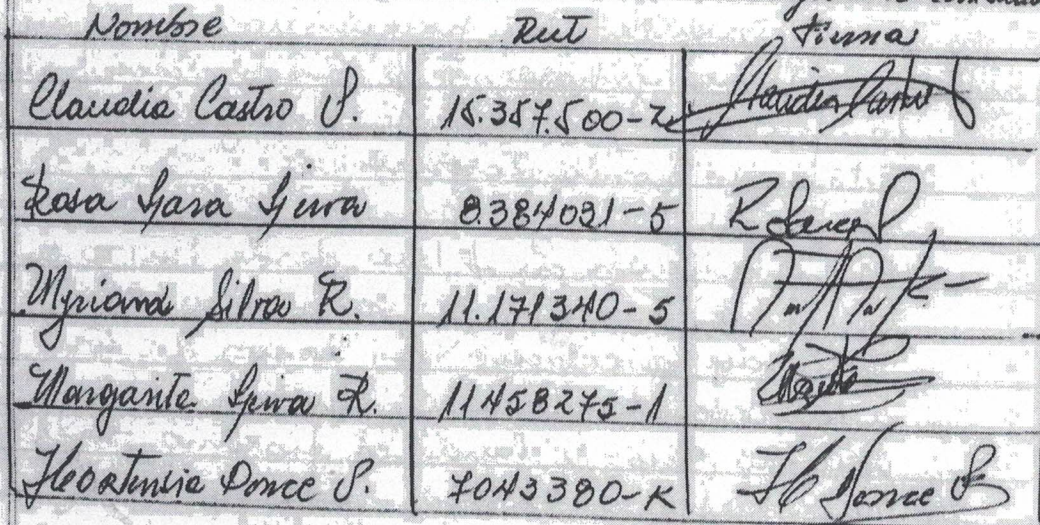 Nombre Rut Firma
Claudia Castro S. 15.357.500-2 Claudia Castro
Rosa Jara 8.384021-5
Myriam Silva R. 11.171340-5
Margarita R. 11458275-1
Hortensia Ponce S. 7043380-K H Ponce S